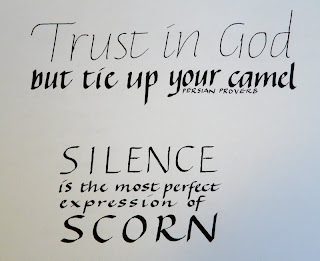 Trust in God
but tie up your camel
PERSIAN PROVERB
SILENCE
is the most perfect
expression of
SCORN